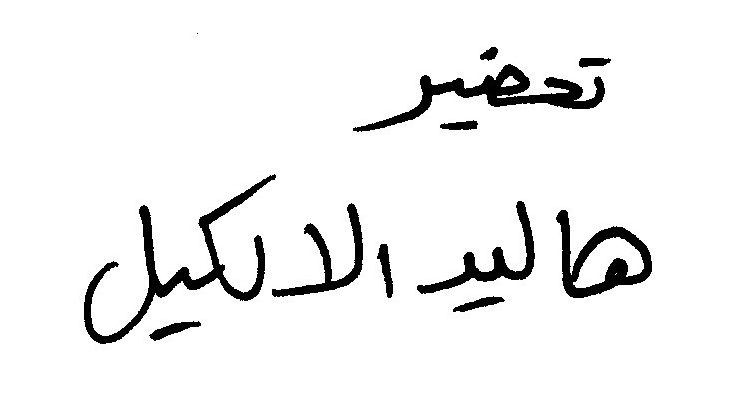 تحضير
هاليد الالكيل